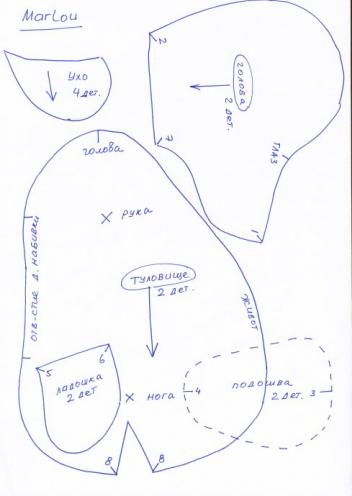 MarLou
ухо
4 дет.
2
голова
2 дет.
7
глаз
1
голова
рука
отв-стие д. набивки
туловище
2 дет.
живот
5
6
ладошка
2 дет
нога
4
подошва
2 дет.
3
8
8